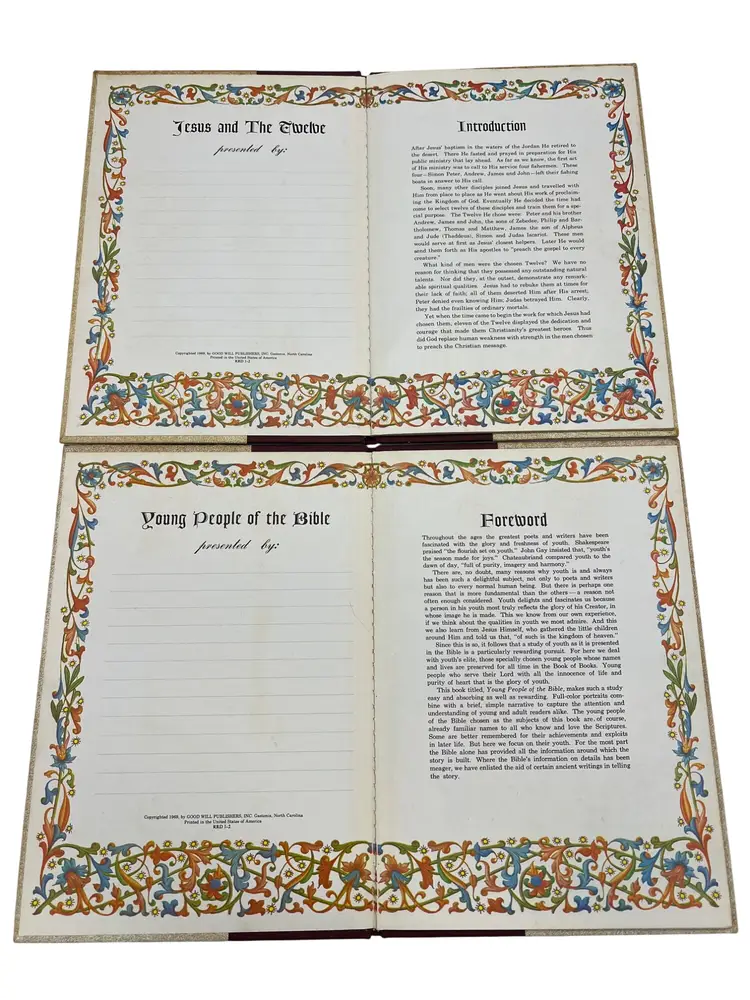 Jesus and The Twelve
presented by:
Copyrighted 1969, by GOOD WILL PUBLISHERS, INC. Gastonia, North Carolina
Printed in the United States of America
RRD 1-2
Introduction
After Jesus' baptism in the waters of the Jordan He retired to
the desert. There He fasted and prayed in preparation for His
public ministry that lay ahead. As far as we know, the first act
of His ministry was to call to His service four fishermen. These
four—Simon Peter, Andrew, James and John—left their fishing
boats in answer to His call.
Soon, many other disciples joined Jesus and travelled with
Him from place to place as He went about His work of proclaim-
ing the Kingdom of God. Eventually He decided the time had
come to select twelve of these disciples and train them for a spe-
cial purpose. The Twelve He chose were: Peter and his brother
Andrew, James and John, the sons of Zebedee, Philip and Bar-
tholomew, Thomas and Matthew, James the son of Alpheus
and Jude (Thaddeus), Simon and Judas Iscariot. These men
would serve at first as Jesus' closest helpers. Later He would
send them forth as His apostles to "preach the gospel to every
creature."
What kind of men were the chosen Twelve? We have no
reason for thinking that they possessed any outstanding natural
talents. Nor did they, at the outset, demonstrate any remark-
able spiritual qualities. Jesus had to rebuke them at times for
their lack of faith; all of them deserted Him after His arrest;
Peter denied even knowing Him; Judas betrayed Him. Clearly,
they had the frailties of ordinary mortals.
Yet when the time came to begin the work for which Jesus had
chosen them, eleven of the Twelve displayed the dedication and
courage that made them Christianity's greatest heroes. Thus
did God replace human weakness with strength in the men chosen
to preach the Christian message.
Young People of the Bible
presented by:
Copyrighted 1969, by GOOD WILL PUBLISHERS, INC. Gastonia, North Carolina
Printed in the United States of America
RRD 1-2
Foreword
Throughout the ages the greatest poets and writers have been
fascinated with the glory and freshness of youth. Shakespeare
praised "the flourish set on youth." John Gay insisted that, "youth's
the season made for joys." Chateaubriand compared youth to the
dawn of day, "full of purity, imagery and harmony."
There are, no doubt, many reasons why youth is and always
has been such a delightful subject, not only to poets and writers
but also to every normal human being. But there is perhaps one
reason that is more fundamental than the others—a reason not
often enough considered. Youth delights and fascinates us because
a person in his youth most truly reflects the glory of his Creator, in
whose image he is made. This we know from our own experience,
if we think about the qualities in youth we most admire. And this
we also learn from Jesus Himself, who gathered the little children
around Him and told us that, "of such is the kingdom of heaven."
Since this is so, it follows that a study of youth as it is presented
in the Bible is a particularly rewarding pursuit. For here we deal
with youth's elite, those specially chosen young people whose names
and lives are preserved for all time in the Book of Books. Young
people who serve their Lord with all the innocence of life and
purity of heart that is the glory of youth.
This book titled, Young People of the Bible, makes such a study
easy and absorbing as well as rewarding. Full-color portraits com-
bine with a brief, simple narrative to capture the attention and
understanding of young and adult readers alike. The young people
of the Bible chosen as the subjects of this book are, of course,
already familiar names to all who know and love the Scriptures.
Some are better remembered for their achievements and exploits
in later life. But here we focus on their youth. For the most part
the Bible alone has provided all the information around which the
story is built. Where the Bible's information on details has been
meager, we have enlisted the aid of certain ancient writings in telling
the story.